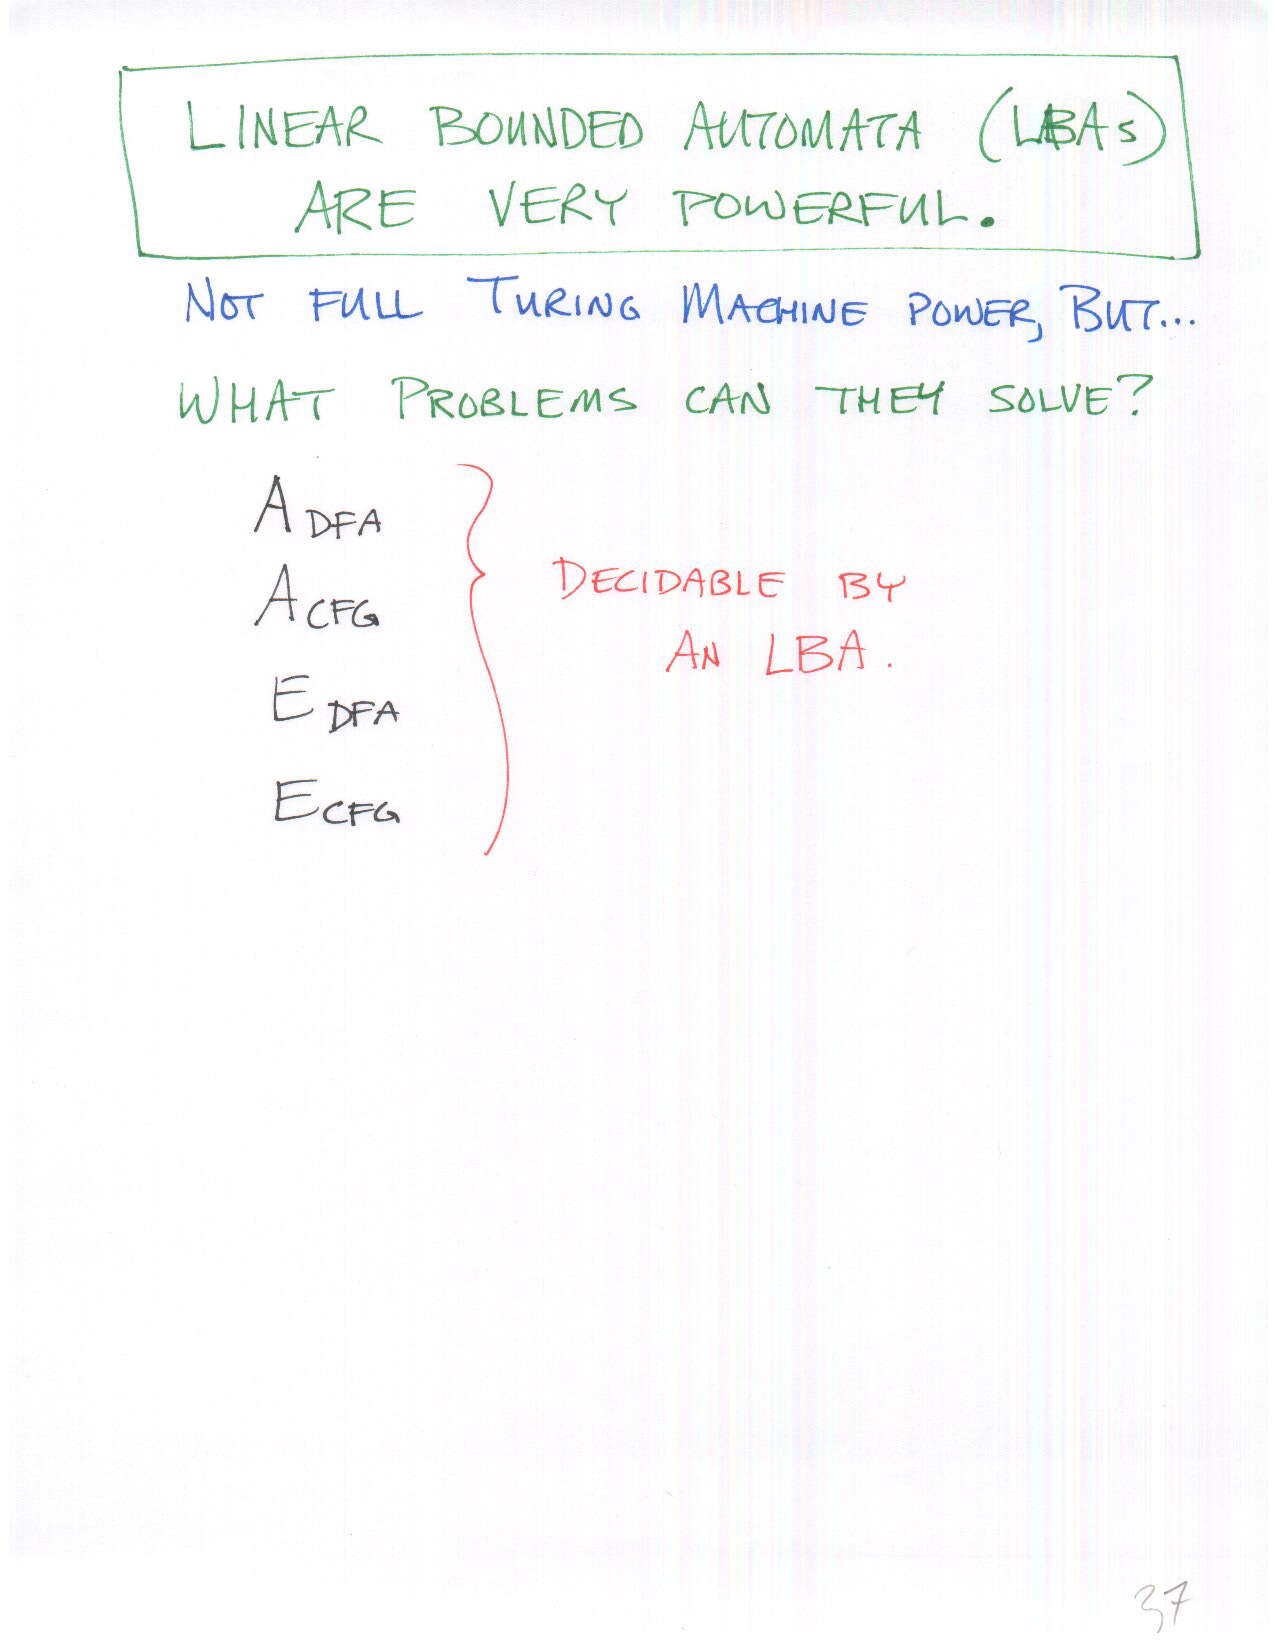 LINEAR BOUNDED AUTOMATA (LBAs)
ARE VERY POWERFUL.
NOT FULL TURING MACHINE POWER, BUT...
WHAT PROBLEMS CAN THEY SOLVE?
A DFA
A CFG
E DFA
E CFG
DECIDABLE BY
AN LBA.
37